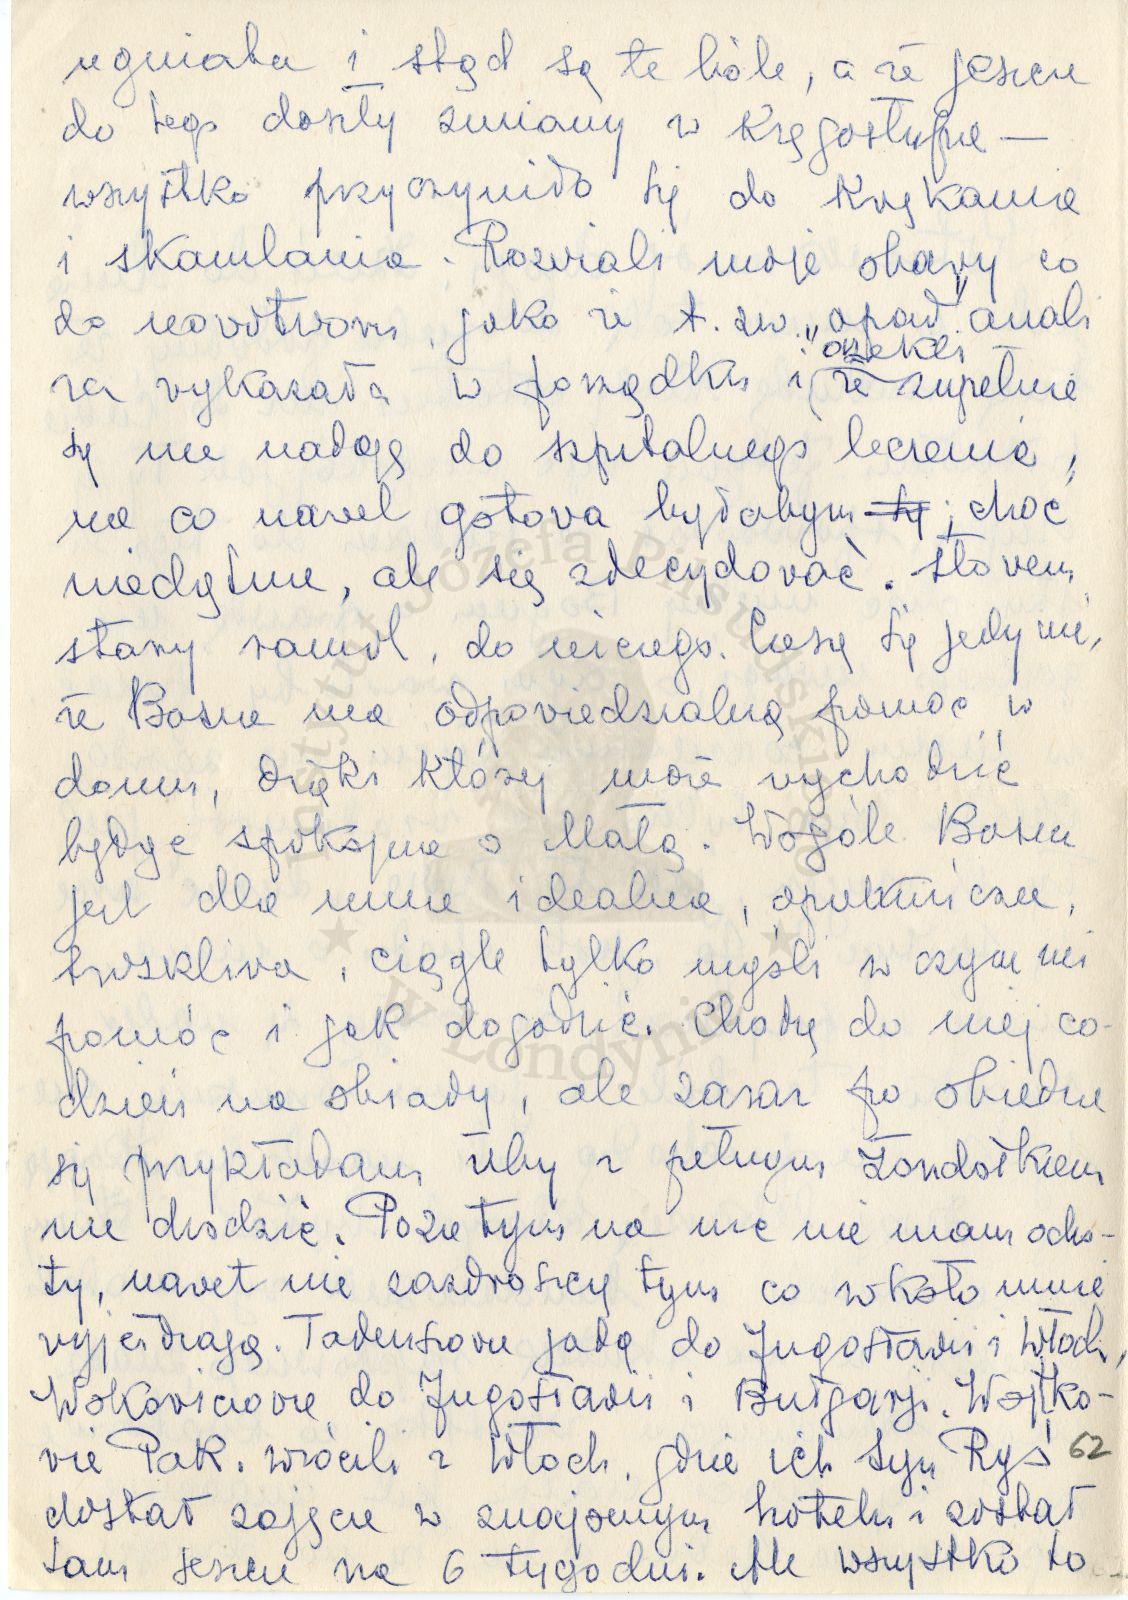 ugniata i stąd są te bóle, a że jeszcze
do tego doszły zmiany w kręgosłupie —
wszystko przyczyniło się do stękania
i skamlania. Rozwiali moje obawy co
do nowotworu, jako że t. zw. „opad" anali
za wykazała w porządku i orzekli że zupełnie
się nie nadaję do szpitalnego leczenia,
na co nawet gotowa byłabym się, choć
niechętnie, ale się zdecydować. Słowem
stary ramol, do niczego. Cieszę się jedynie,
że Bosia ma odpowiedzialną pomoc w
domu, dzięki której może wychodzić
będąc spokojna o Małą. Wogóle Bosia
jest dla mnie idealna, opiekuńcza,
troskliwa, ciągle tylko myśli w czym mi
pomóc i jak dogodzić. Chodzę do niej co-
dzień na obiady, ale zaraz po obiedzie
się przykładam żeby z pełnym żołądkiem
nie chodzić. Poza tym na nic nie mam ocho-
ty, nawet nie zazdroszczę tym co wkoło mnie
wyjeżdżają. Tadeuszowie jadą do Jugosławii i Włoch,
do Jugosławii i Bułgarji. Wojtko-
wie Pak. wrócili z Włoch, gdzie ich syn Ryś
dostał zajęcie w znajomym hotelu i został
tam jeszcze na 6 tygodni. Ale wszystko to
62
Instytut Józefa Piłsudskiego
★ w Londynie ★